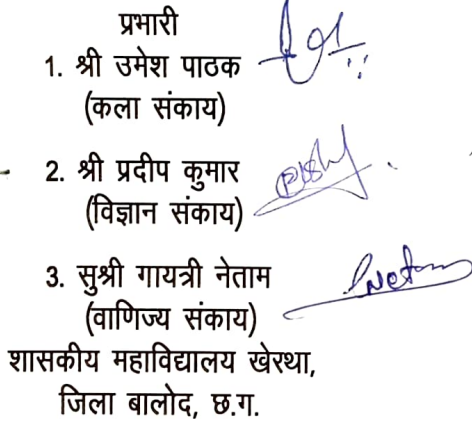 प्रभारी
1. श्री उमेश पाठक
(कला संकाय)
2. श्री प्रदीप कुमार
(विज्ञान संकाय)
3. सुश्री गायत्री नेताम
(वाणिज्य संकाय)
शासकीय महाविद्यालय खेरथा,
जिला बालोद, छ.ग.